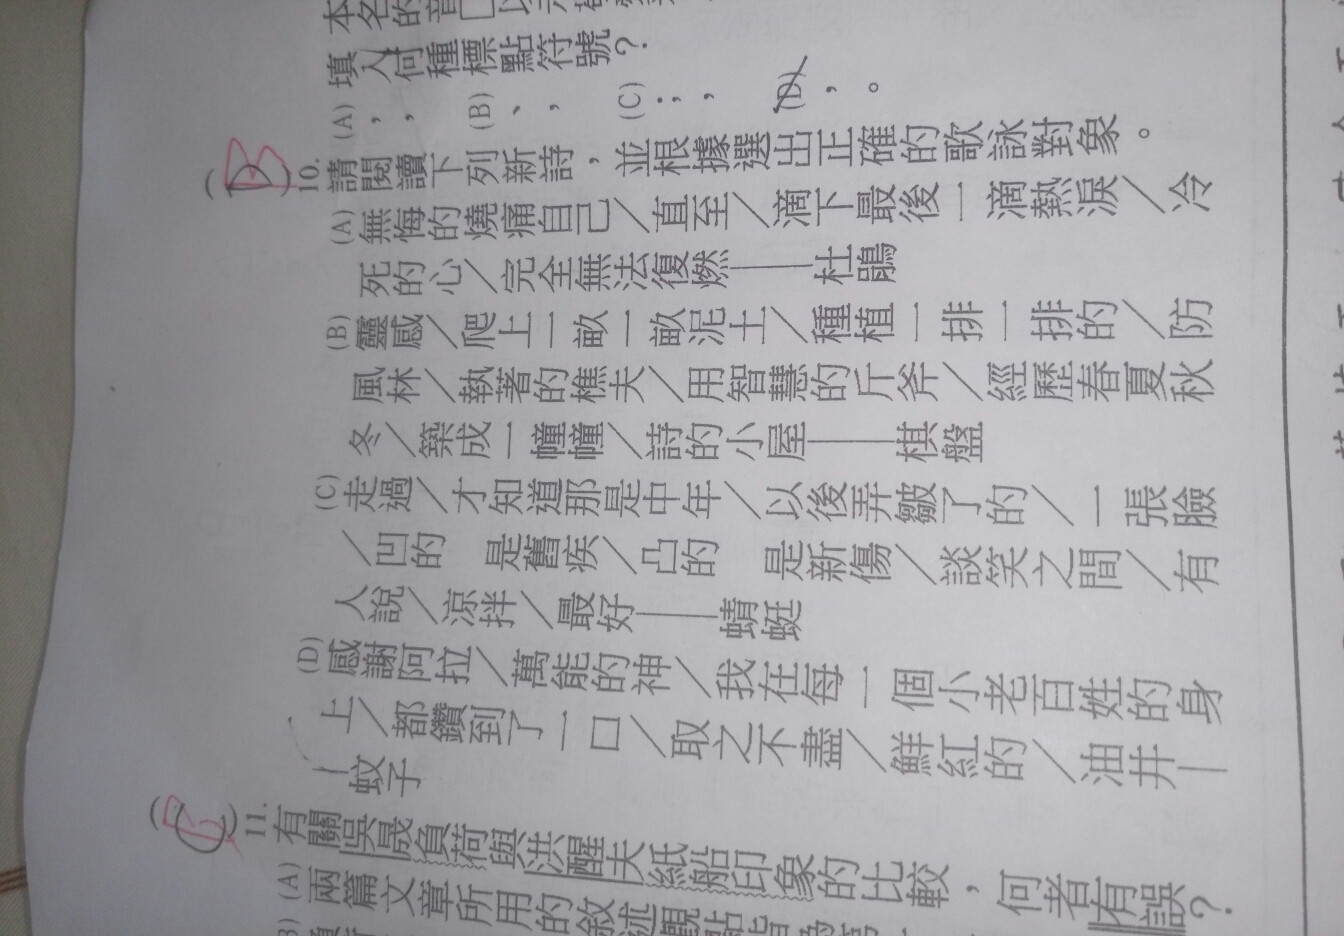 填入何種標點符號?
(A),, (B)、, (C);, (D),。
(B)10.請閱讀下列新詩,並根據選出正確的歌詠對象。
(A)無悔的燒痛自己/直至/滴下最後一滴熱淚/冷
死的心/完全無法復燃——杜鵑
(B)靈感/爬上一畝一畝泥土/種植一排一排的/防
風林/執著的樵夫/用智慧的斤斧/經歷春夏秋
冬/築成一幢幢/詩的小屋——棋盤
(C)走過/才知道那是中年/以後弄皺了的/一張臉
/凹的 是舊疾/凸的 是新傷/談笑之間/有
人說/涼拌/最好——蜻蜓
(D)感謝阿拉/萬能的神/我在每一個小老百姓的身
上/都鑽到了一口/取之不盡/鮮紅的/油井—
—蚊子
11.有關吳晟負荷與洪醒夫紙船印象的比較,何者有誤?
(A)兩篇文章所用的敘述觀點皆